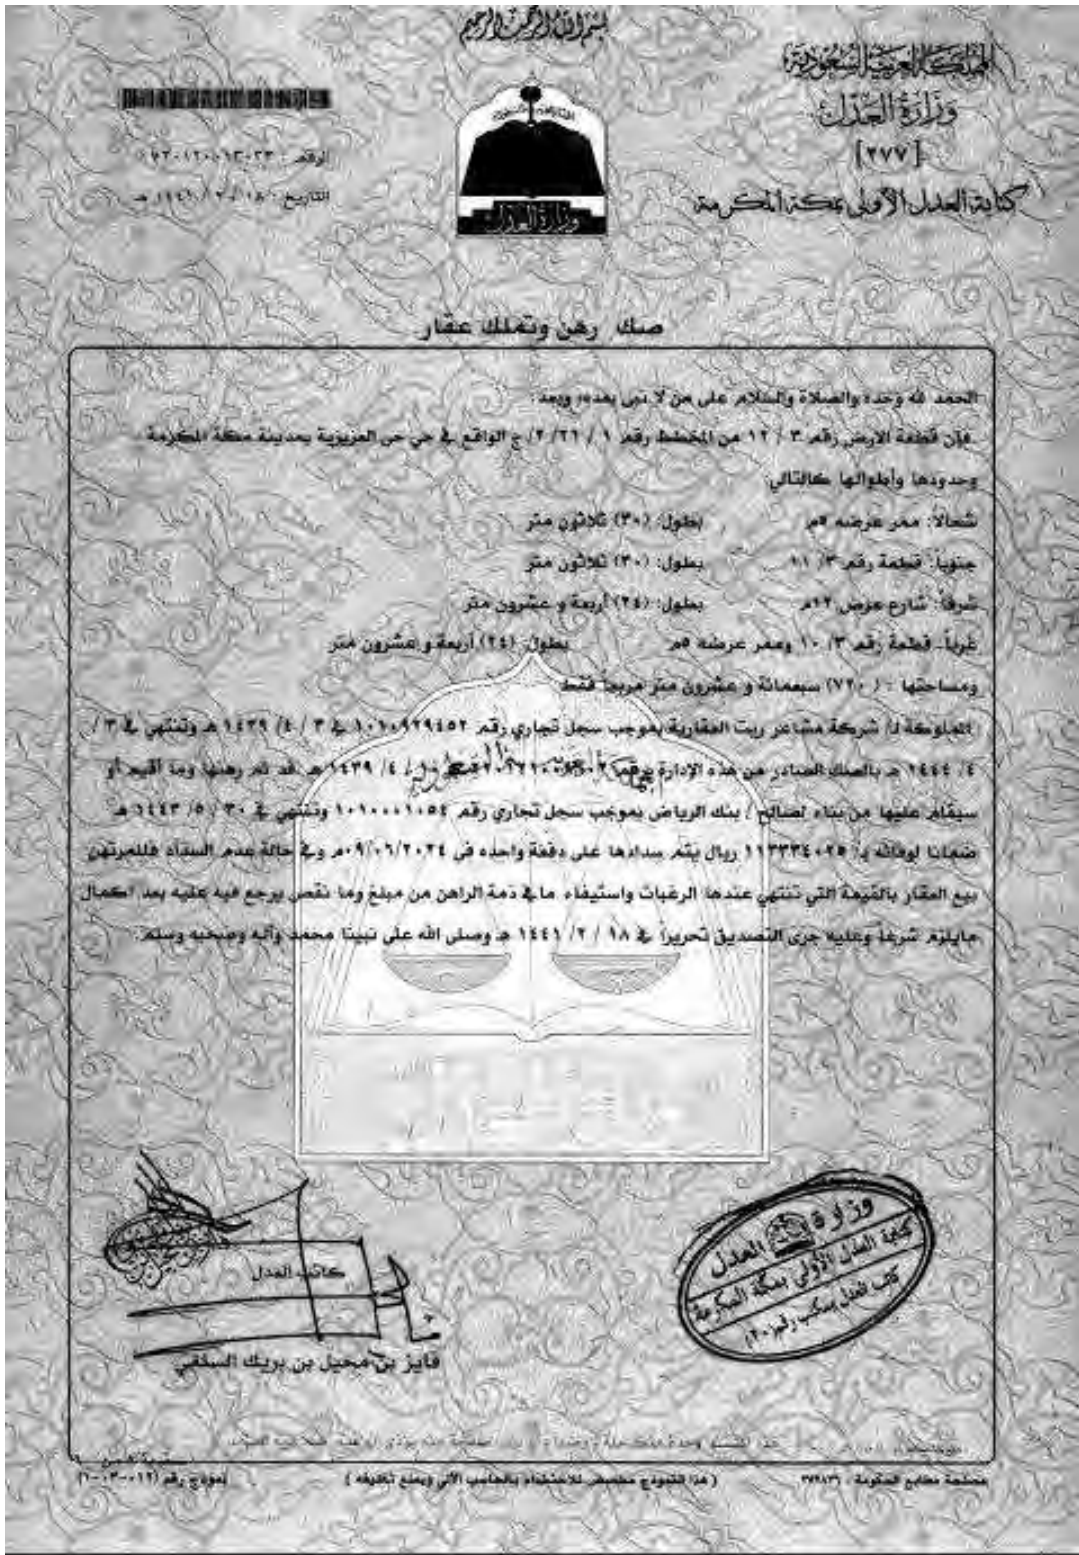 بسم الله الرحمن الرحيم
المملكة العربية السعودية
وزارة العدل
[٢٧٧]
كتابة العدل الأولى بمكة المكرمة
الرقم :
التاريخ : ١٨ / ٢ / ١٤٤١ هـ
وزارة العدل
صك رهن وتملك عقار
الحمد لله وحده والصلاة والسلام على من لا نبي بعده، وبعد:
فإن قطعة الارض رقم ٣ / ١٢ من المخطط رقم ١ / ٢٦/ ٢/ ج الواقع في حي حي العزيزية بمدينة مكة المكرمة
وحدودها وأطوالها كالتالي:
شمالاً: ممر عرضه ٥م بطول: (٣٠) ثلاثون متر
جنوباً: قطعة رقم ٣/ ١١ بطول: (٣٠) ثلاثون متر
شرقاً: شارع عرض ١٢م بطول: (٢٤) أربعة و عشرون متر
غرباً: قطعة رقم ٣/ ١٠ وممر عرضه ٥م بطول: (٢٤) أربعة و عشرون متر
ومساحتها : (٧٢٠) سبعمائة و عشرون متر مربعاً فقط
المملوكة لـ/ شركة مشاعر ريت العقارية بموجب سجل تجاري رقم ١٠١٠٩٢٩٤٥٢ في ٣ / ٤/ ١٤٣٩ هـ وتنتهي في ٣ /
٤/ ١٤٤٤ هـ بالصك الصادر من هذه الإدارة برقم في ١٠ / ٤/ ١٤٣٩ هـ قد تم رهنها وما أقيم أو
سيقام عليها من بناء لصالح / بنك الرياض بموجب سجل تجاري رقم ١٠١٠٠٠١٠٥٤ وتنتهي في ٣٠ / ٥/ ١٤٤٣ هـ
ضمانا لوفائه بـ/ ١١٣٣٣٤٠٢٥ ريال يتم سدادها على دفعة واحده في ٠٩/٠٦/٢٠٢٤م وفي حالة عدم السداد فللمرتهن
بيع العقار بالقيمة التي تنتهي عندها الرغبات واستيفاء ما في ذمة الراهن من مبلغ وما نقص يرجع فيه عليه بعد اكمال
مايلزم شرعاً وعليه جرى التصديق تحريراً في ١٨ / ٢/ ١٤٤١ هـ وصلى الله على نبينا محمد وآله وصحبه وسلم.
وزارة العدل
كتابة العدل الأولى بمكة المكرمة
كاتب العدل بمكتب رقم (٢٠)
كاتب العدل
فايز بن محيل بن بريك السلفي
مصلحة مطابع الحكومة - ٣٧٩٨٣٦ ( هذا النموذج مخصص للاستخدام بالحاسب الآلي ويمنع تغليفه ) نموذج رقم (١٢-٠٣-١)